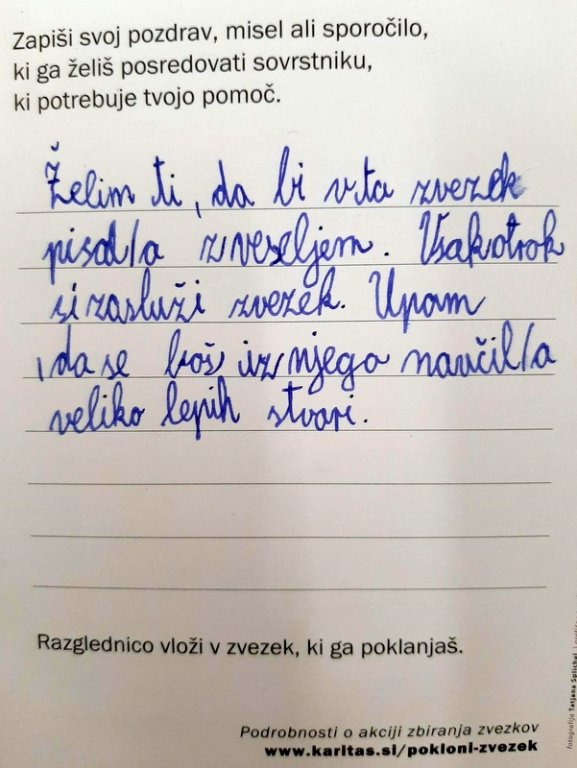 Zapiši svoj pozdrav, misel ali sporočilo,
ki ga želiš posredovati sovrstniku,
ki potrebuje tvojo pomoč.
Želim ti, da bi v ta zvezek
pisal/a z veseljem. Vsak otrok
si zasluži zvezek. Upam
, da se boš iz njega navčil/a
veliko lepih stvari.
Razglednico vloži v zvezek, ki ga poklanjaš.
Podrobnosti o akciji zbiranja zvezkov
www.karitas.si/pokloni-zvezek
fotografija Tatjana Splichal